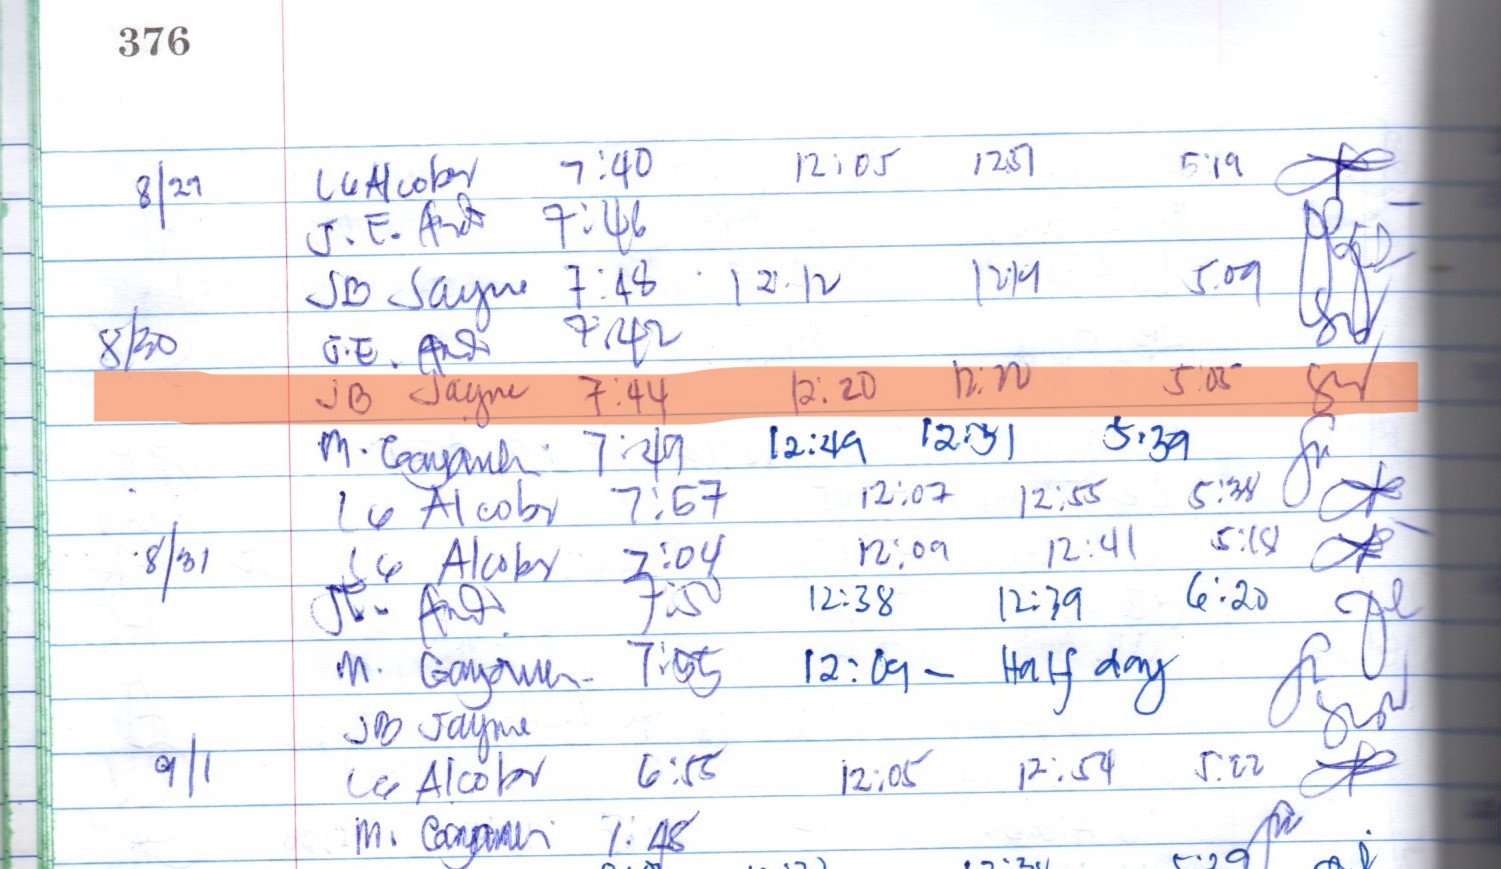 376
8/29 LG Alcober 7:40 12:05 1251 5:19
J.E. And 7:46
JB Jayme 7:48 12.12 1219 5.09
8/30 J.E. And 7:42
JB Jayme 7:44 12:20 12:20 5:05
M. 7:49 12:49 12:51 5:39
LG Alcober 7:57 12:07 12:55 5:38
8/31 LG Alcober 7:04 12:09 12:41 5:18
JE. And 7:50 12:38 12:39 6:20
M. 7:55 12:09 – Half day
JB Jayme
9/1 LG Alcober 6:55 12:05 12:54 5:22
M. 7:48